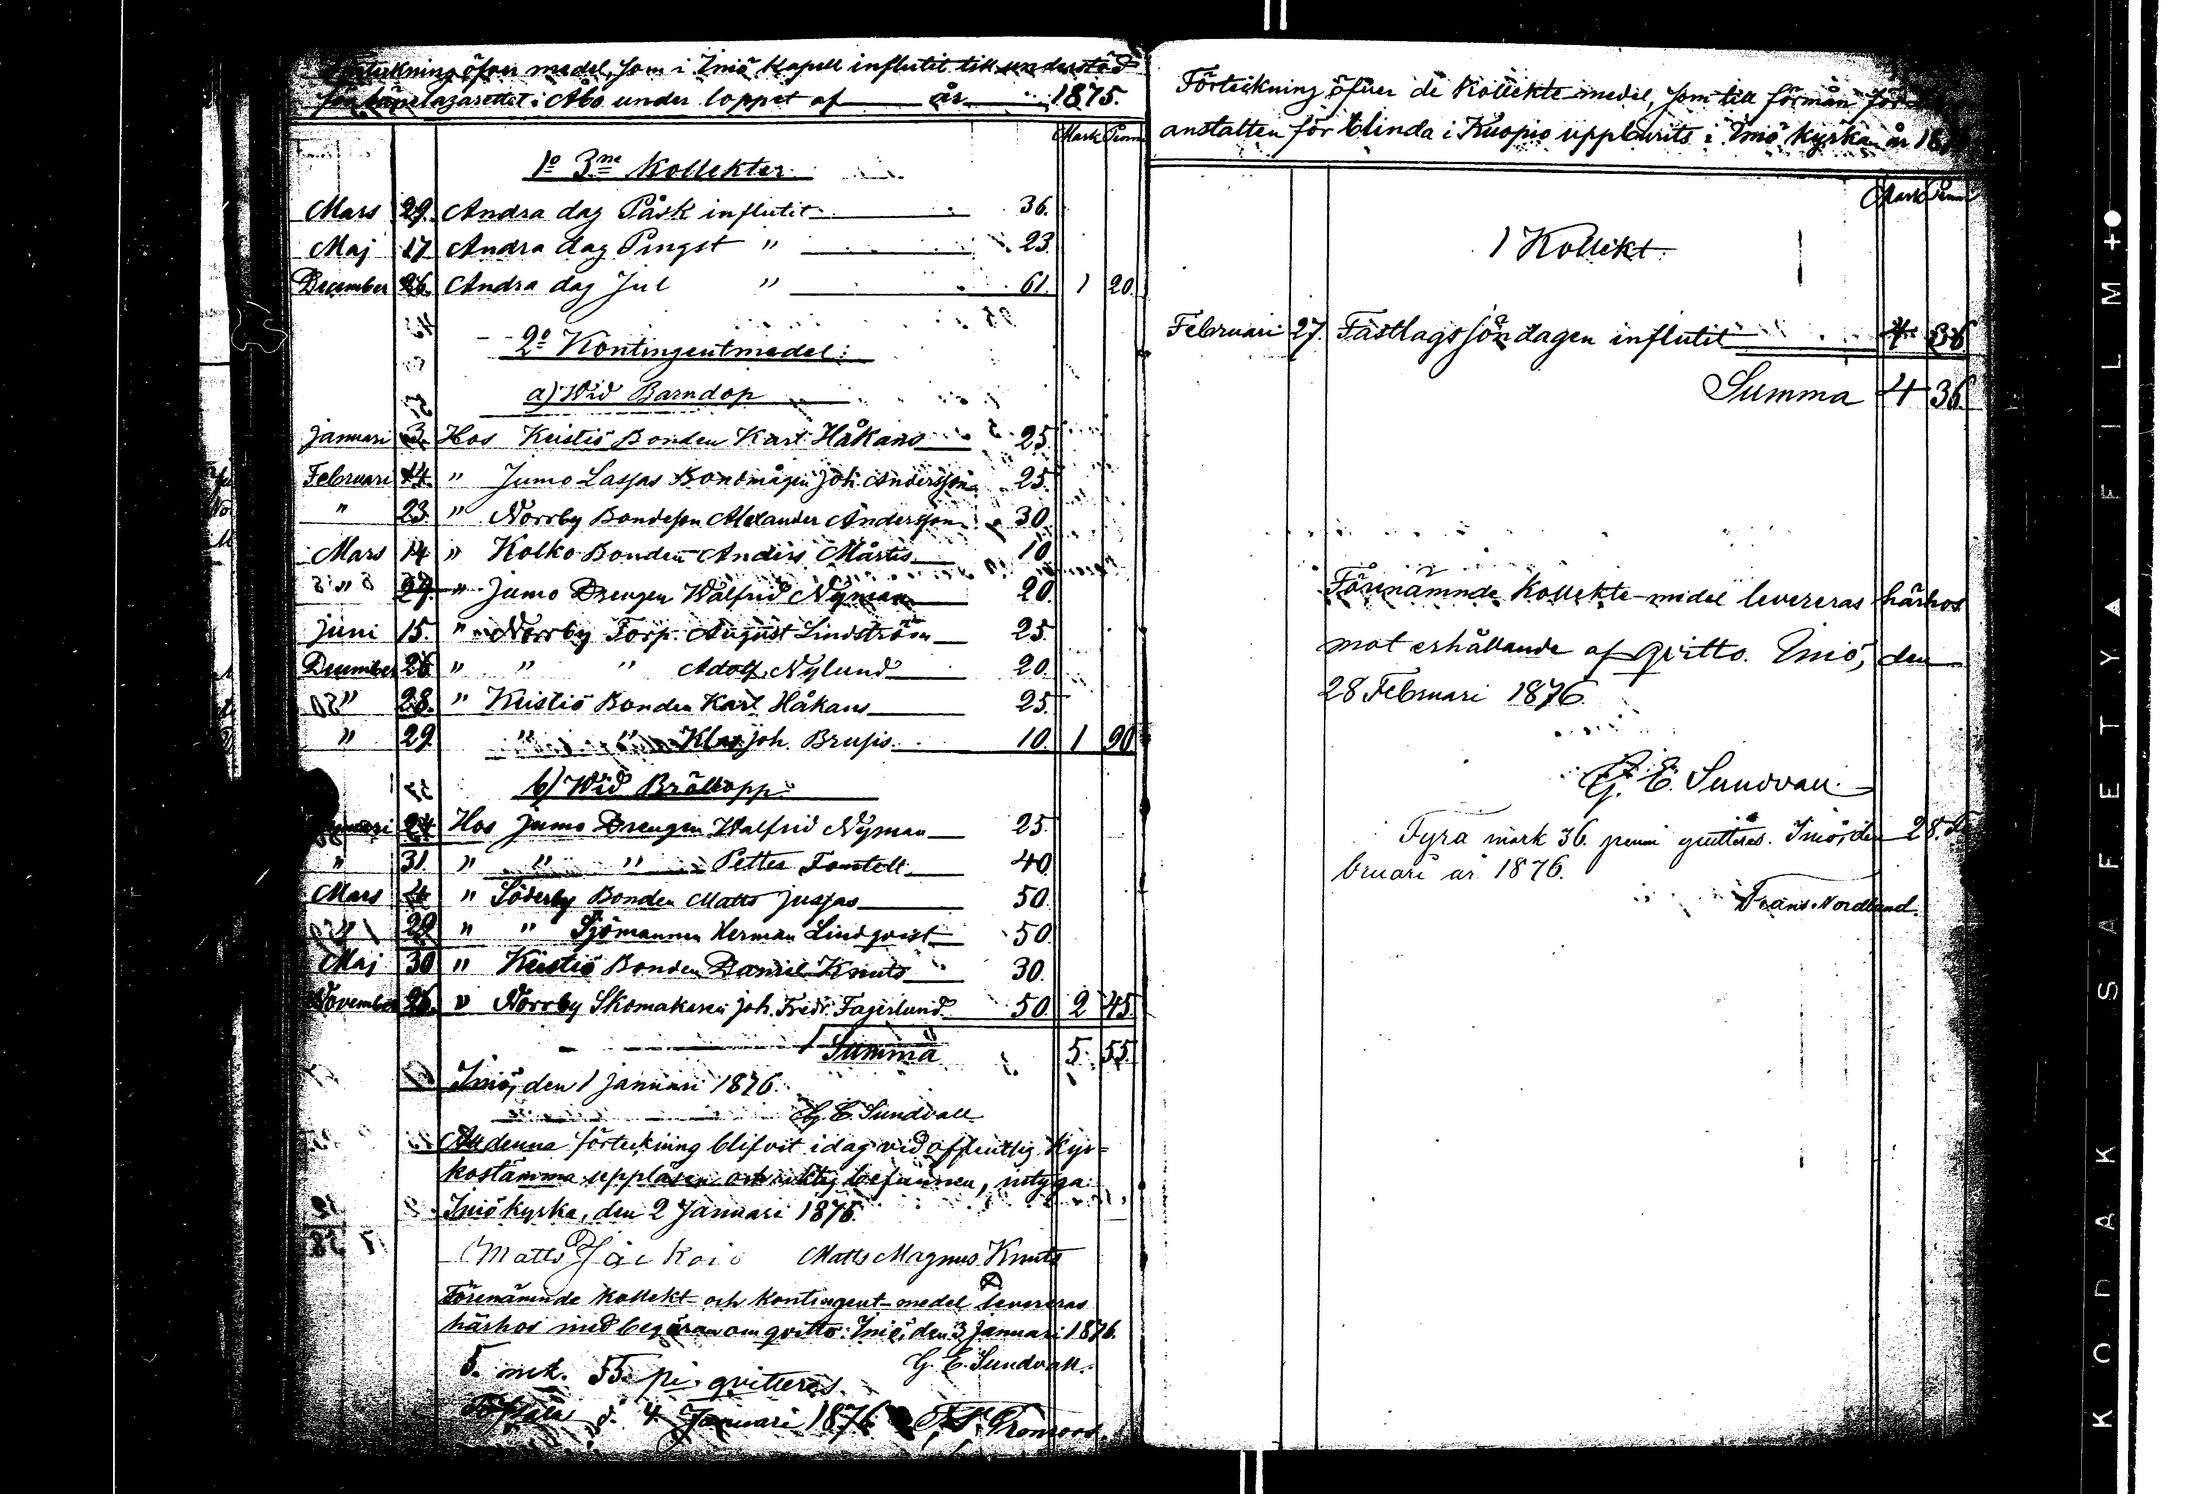 Förteckning öfver medel, som i Iniö Kapell influtit till understöd
för länelazarettet i Åbo under loppet af år 1875.
Mark Penni
1o 3ne Kollekter
Mars 29. Andra dag Påsk influtit 36.
Maj 17 Andra dag Pingst " 23.
December 26. Andra dag Jul " 61. 1 20.
2o Kontingentmedel:
a) Wid Barndop
Januari 3. Hos Keistiö Bonden Karl Håkans 25.
Februari 14. " Jumo Lassas Bondmågen Joh. Andersson 25.
" 23. " Norrby Bondeson Alexander Andersson 30.
Mars 14 " Kolko Bonden Anders Mårtis 10.
" 27. " Jumo Drengen Walfrid Nyman 20.
Juni 15. " Norrby Torp. August Lindström 25.
December 26 " " " Adolf Nylund 20.
" 28. " Keistiö Bonden Karl Håkans 25.
" 29. " " Klas Joh. Brusis 10. 1 90
b) Wid Bröllopp
Januari 24 Hos Jumo Drengen Walfrid Nyman 25.
" 31. " " " Petter Fontell 40.
Mars 4 " Söderby Bonden Matts Jussas 50.
" 29 " " Sjömannen Herman Lindqvist 50.
Maj 30 " Keistiö Bonden Daniel Knuts 30.
November 26. " Norrby Skomakaren Joh. Fredr. Fagerlund 50. 2 45.
Summa 5. 55.
Iniö, den 1 Januari 1876.
G. E. Sundvall
Att denna förteckning blifvit idag vid offentlig Kyr=
kostämma uppläsen och riktig befunnen, intyga.
Iniö kyrka, den 2 Januari 1876.
Matts Matts Magnus Knuts
Förenämnde Kollekt- och Kontingent-medel levereras
härhos med begäran om qvitto. Iniö, den 3 Januari 1876.
G. E. Sundvall.
5. mk. 55. pi. qvitteras.
d. 4 Januari 1876
Förteckning öfver de Kollekte-medel, som till förmån för
anstalten för blinda i Kuopio uppburits i Iniö kyrka år
Mark Penni
1 Kollekt.
Februari 27. Fastlagssöndagen influtit 4 36
Summa 4 36.
Förenämnde Kollekte-medel levereras härhos
mot erhållande af qvitto. Iniö, den
28 Februari 1876.
G. E. Sundvall.
Fyra mark 36. penni qvitteras. Iniö, den 28. Fe
bruari år 1876.
Frans Nordlund.
KODAK SAFETY ▲ FILM